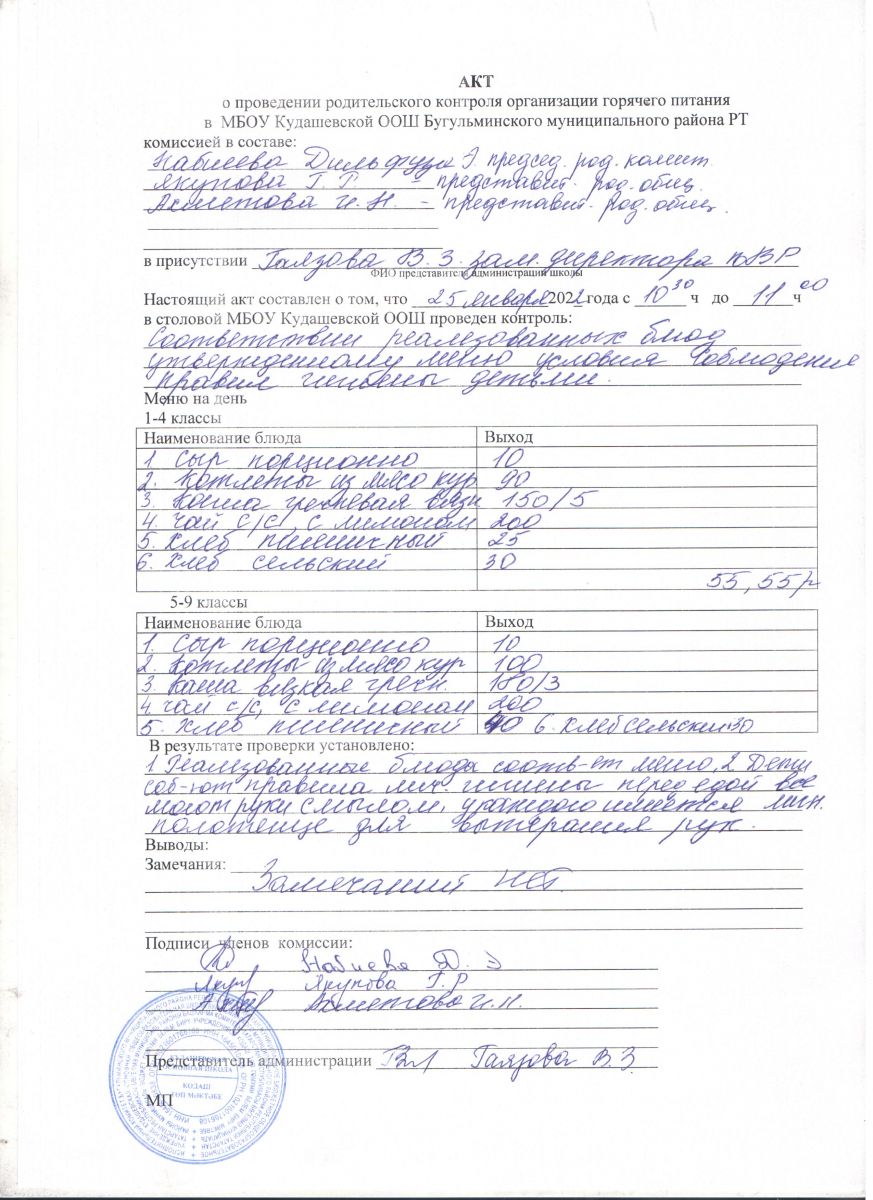 АКТ
о проведении родительского контроля организации горячего питания
в МБОУ Кудашевской ООШ Бугульминского муниципального района РТ
комиссией в составе:
Набиева Дильфуза Э председ. род. комит.
Якупова Г. Г. - представит. род. общ.
Ахметова И. Н. - представит. род. общ.
в присутствии Гаязова В. З. зам. директора по ВР
ФИО представителя администрации школы
Настоящий акт составлен о том, что 25 января 2022 года с 10 30 ч до 11 00 ч
в столовой МБОУ Кудашевской ООШ проведен контроль:
Соответствии реализованных блюд
утвержденному меню условия соблюдение
правил гигиены детьми.
Меню на день
1-4 классы
Наименование блюда Выход
1 Сыр порционно 10
2. Котлеты из мясо кур 90
3. Каша гречневая вязк 150/5
4. Чай с/с, с лимоном 200
5. Хлеб пшеничный 25
6. Хлеб сельский 30
55,55р
5-9 классы
Наименование блюда Выход
1. Сыр порционно 10
2. Котлеты из мясо кур 100
3. Каша вязкая гречн. 180/3
4 Чай с/с, с лимоном 200
5. Хлеб пшеничный 40 6. Хлеб сельский 30
В результате проверки установлено:
1 Реализованные блюда соотв-ет меню, 2 Дети
соб-ют правила лич. гигиены перед едой все
моют руки с мылом, у каждого имеется лич.
полотенце для вытерания рук.
Выводы:
Замечания:
Замечаний нет.
Подписи членов комиссии:
Набиева Д. Э
Якупова Г. Р
Ахметова И. Н.
Представитель администрации Гаязова В. З
МП
КУДАШЕВСКАЯ
ОСНОВНАЯ ШКОЛА
КОДАШ
ТӨП МӘКТӘБЕ